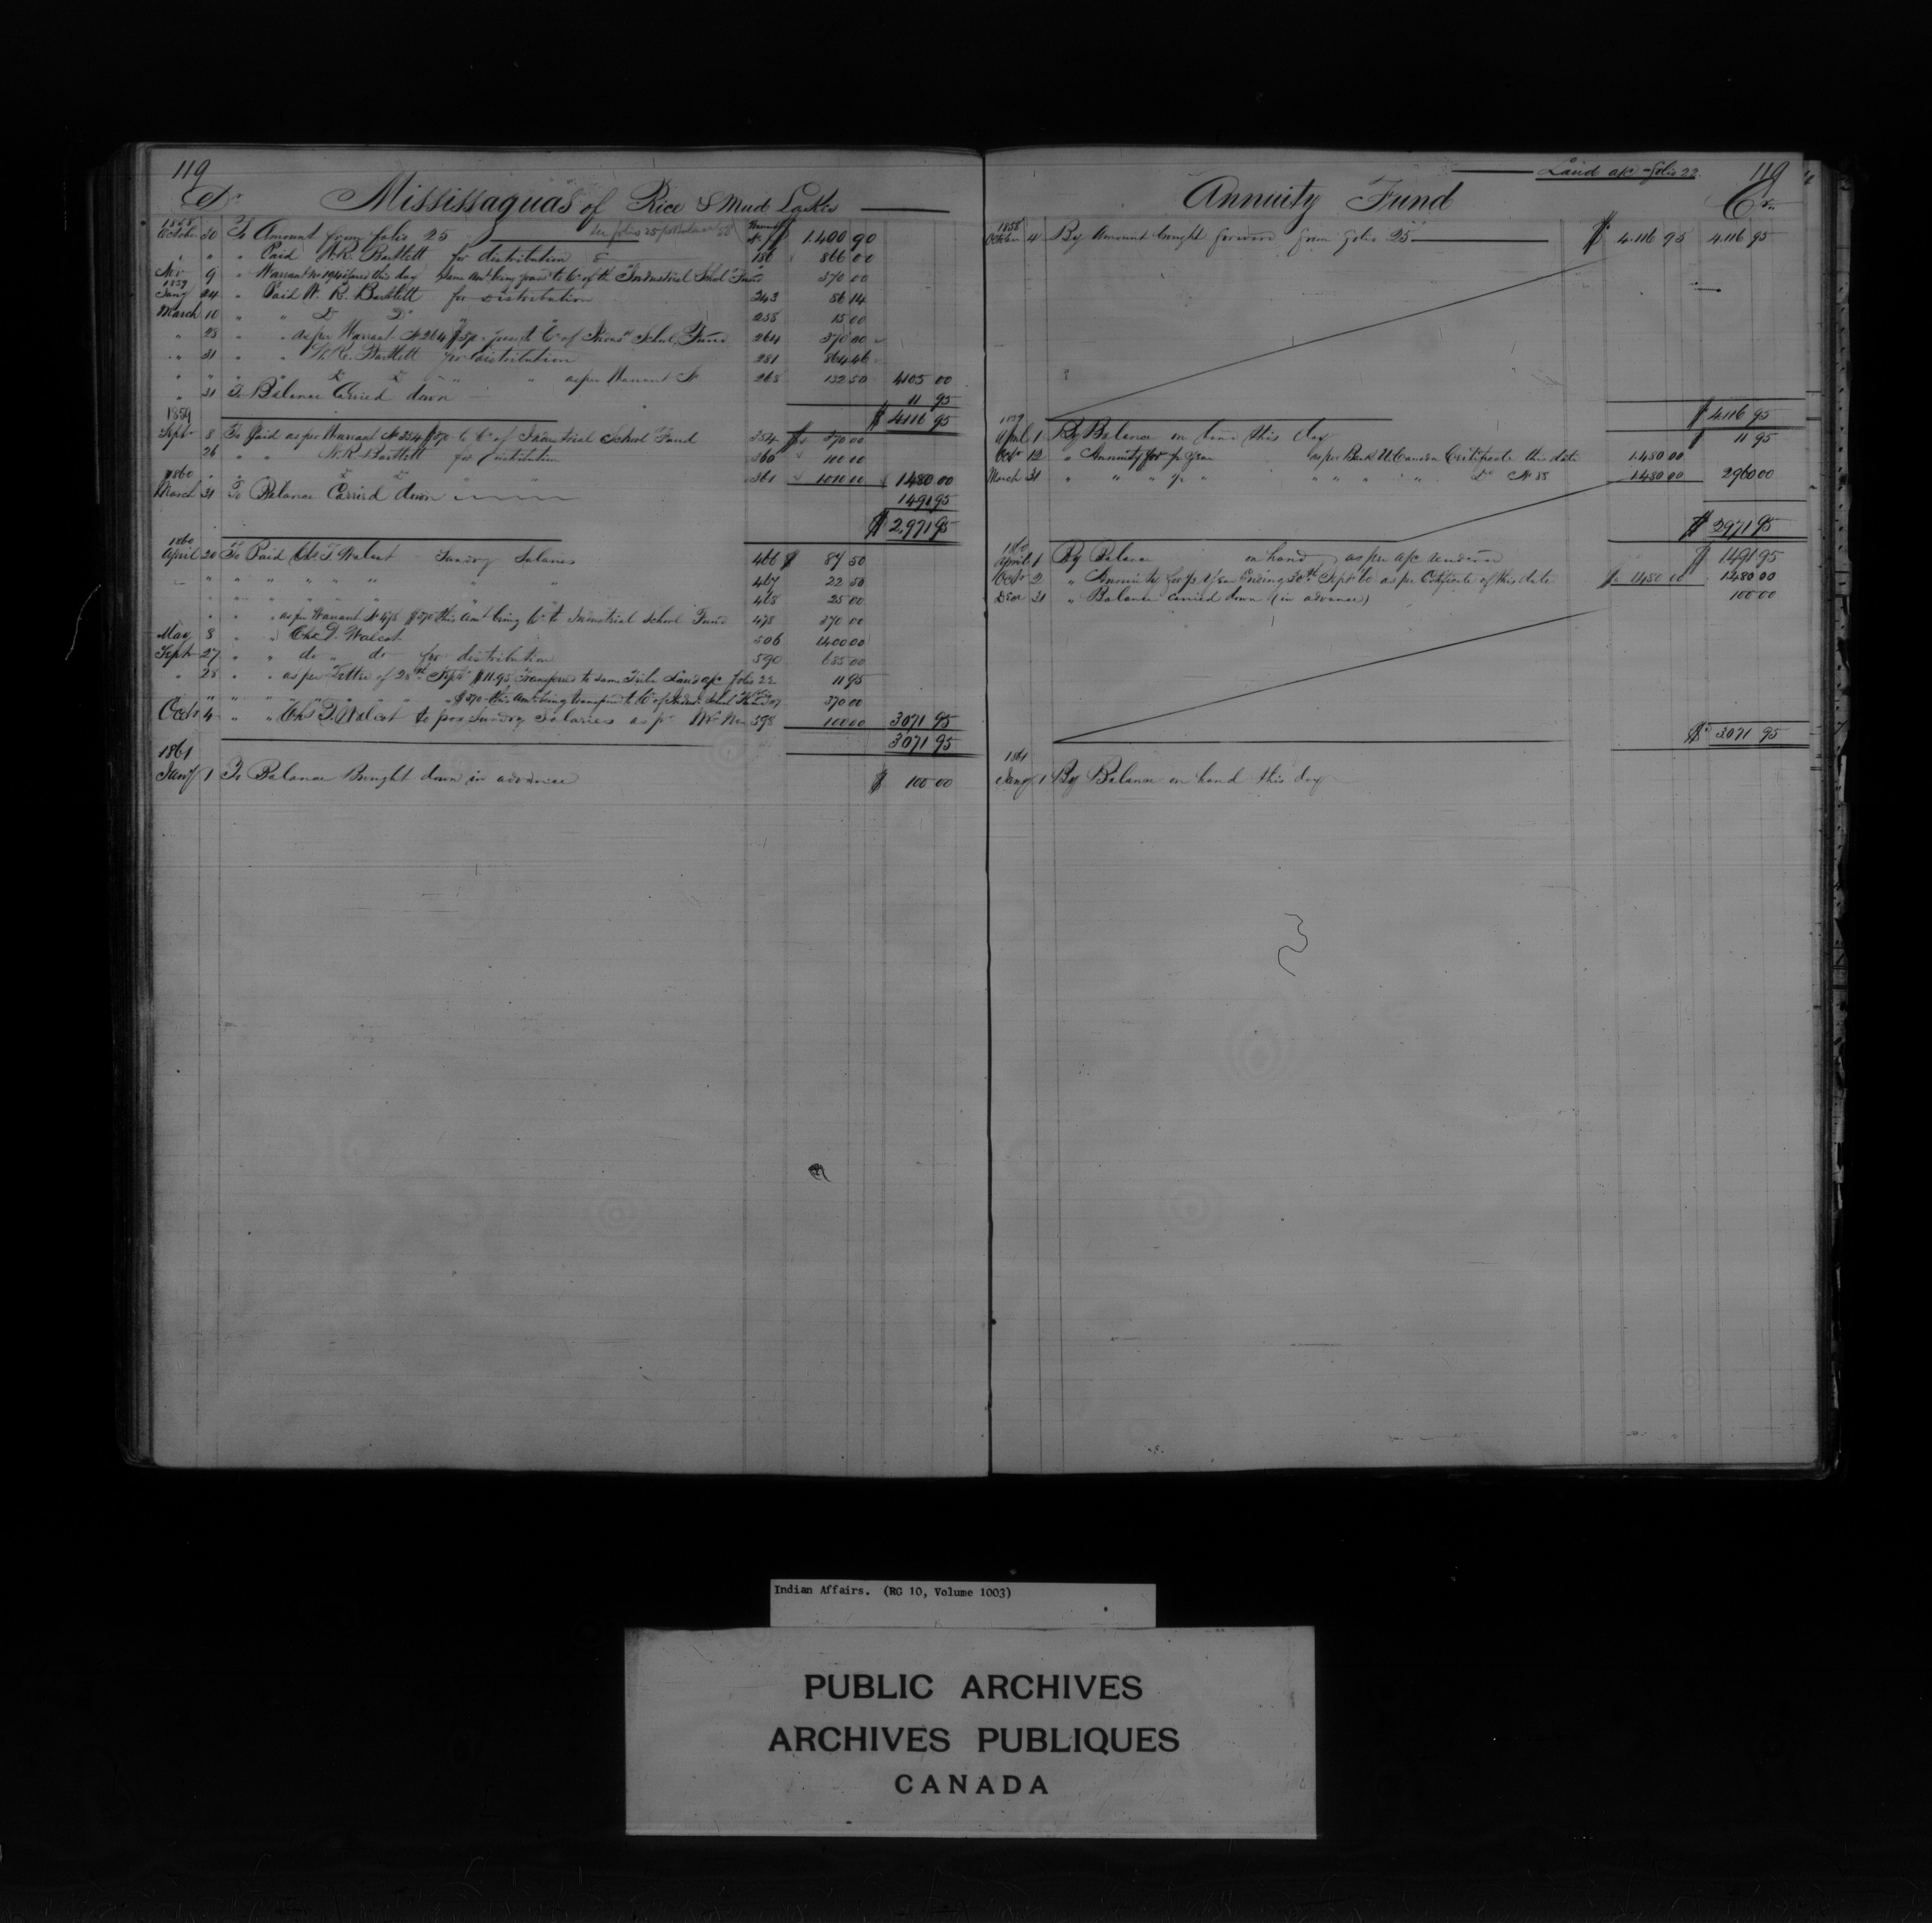 119
Dr. Mississaguas of Rice & Mud Lakes
1858
October 30 To Amount from folio 25 Warrant No. $ 1.400 90
" " " Paid W.R. Bartlett for distribution 186 866 00
Nov 9 " Warrant No 194 issued this day same amt being passed to Cr of the Industrial School Fund 370 00
1859
Jany 24 " Paid W.R. Bartlett for Distribution 243 86 14
March 10 " " Do Do " 258 15 00
" 28 " as per Warrant No 264 to Cr of School Fund 264 370 00
" 31 " W.R. Bartlett for Distribution 281 864 46
" " " " " as per Warrant No 268 132 50 4105 00
" 31 To Balance Carried down 11 95
$ 4116 95
1859
Sept 8 To Paid as per Warrant No 354 $370 to Cr of Industrial School Fund 354 $ 370 00
26 " " W.R. Bartlett for distribution 360 100 00
" " " " 361 1010 00 1480 00
1860
March 31 To Balance Carried down 1491 95
$ 2,971 95
1860
April 20 To Paid Chs. T. Walcot Sundry Salaries 466 $ 87 50
" " " " " " " " 467 22 50
" " " " " " " " 468 25 00
" " as per Warrant No 478 $370 this amt being Cr to Industrial School Fund 478 370 00
May 8 " " Chs. T. Walcot 506 1400 00
Sept 27 " " do " do for distribution 590 685 00
" 28 " " as per Letter of 28th Sept $11.95 Transferred to same Tribe Land a/c folio 22 11 95
" " " " " " $370 this amt being transferred to Cr of School 370 00
Octr 4 " " Chs. T. Walcot to pay Sundry Salaries as pr Wt No 598 100 00 3071 95
3071 95
1861
Jany 1 To Balance Brought down in advance $ 100 00
Land a/c folio 22 119
Annuity Fund Cr.
1858
October 4 By Amount brought forward from folio 25 $ 4.116 95 4.116 95
$ 4116 95
1859
April 1 By Balance on hand this day $ 11 95
Octr 12 " Annuity for ½ year as per Bank U Canada Certificate this date 1.480 00
March 31 " " " ½ " " " " " " Do No 88 1480 00 2960 00
$ 2971 95
1860
April 1 By Balance on hand as per a/c rendered $ 1491 95
Octr 2 " Annuity for ½ Year Ending 30th Sept 60 as per Certificate of this date $ 1480 00 1480 00
Decr 31 " Balance carried down (in advance) 100 00
$ 3071 95
1861
Jany 1 By Balance on hand this day
Indian Affairs. (RG 10, Volume 1003)
PUBLIC ARCHIVES
ARCHIVES PUBLIQUES
CANADA